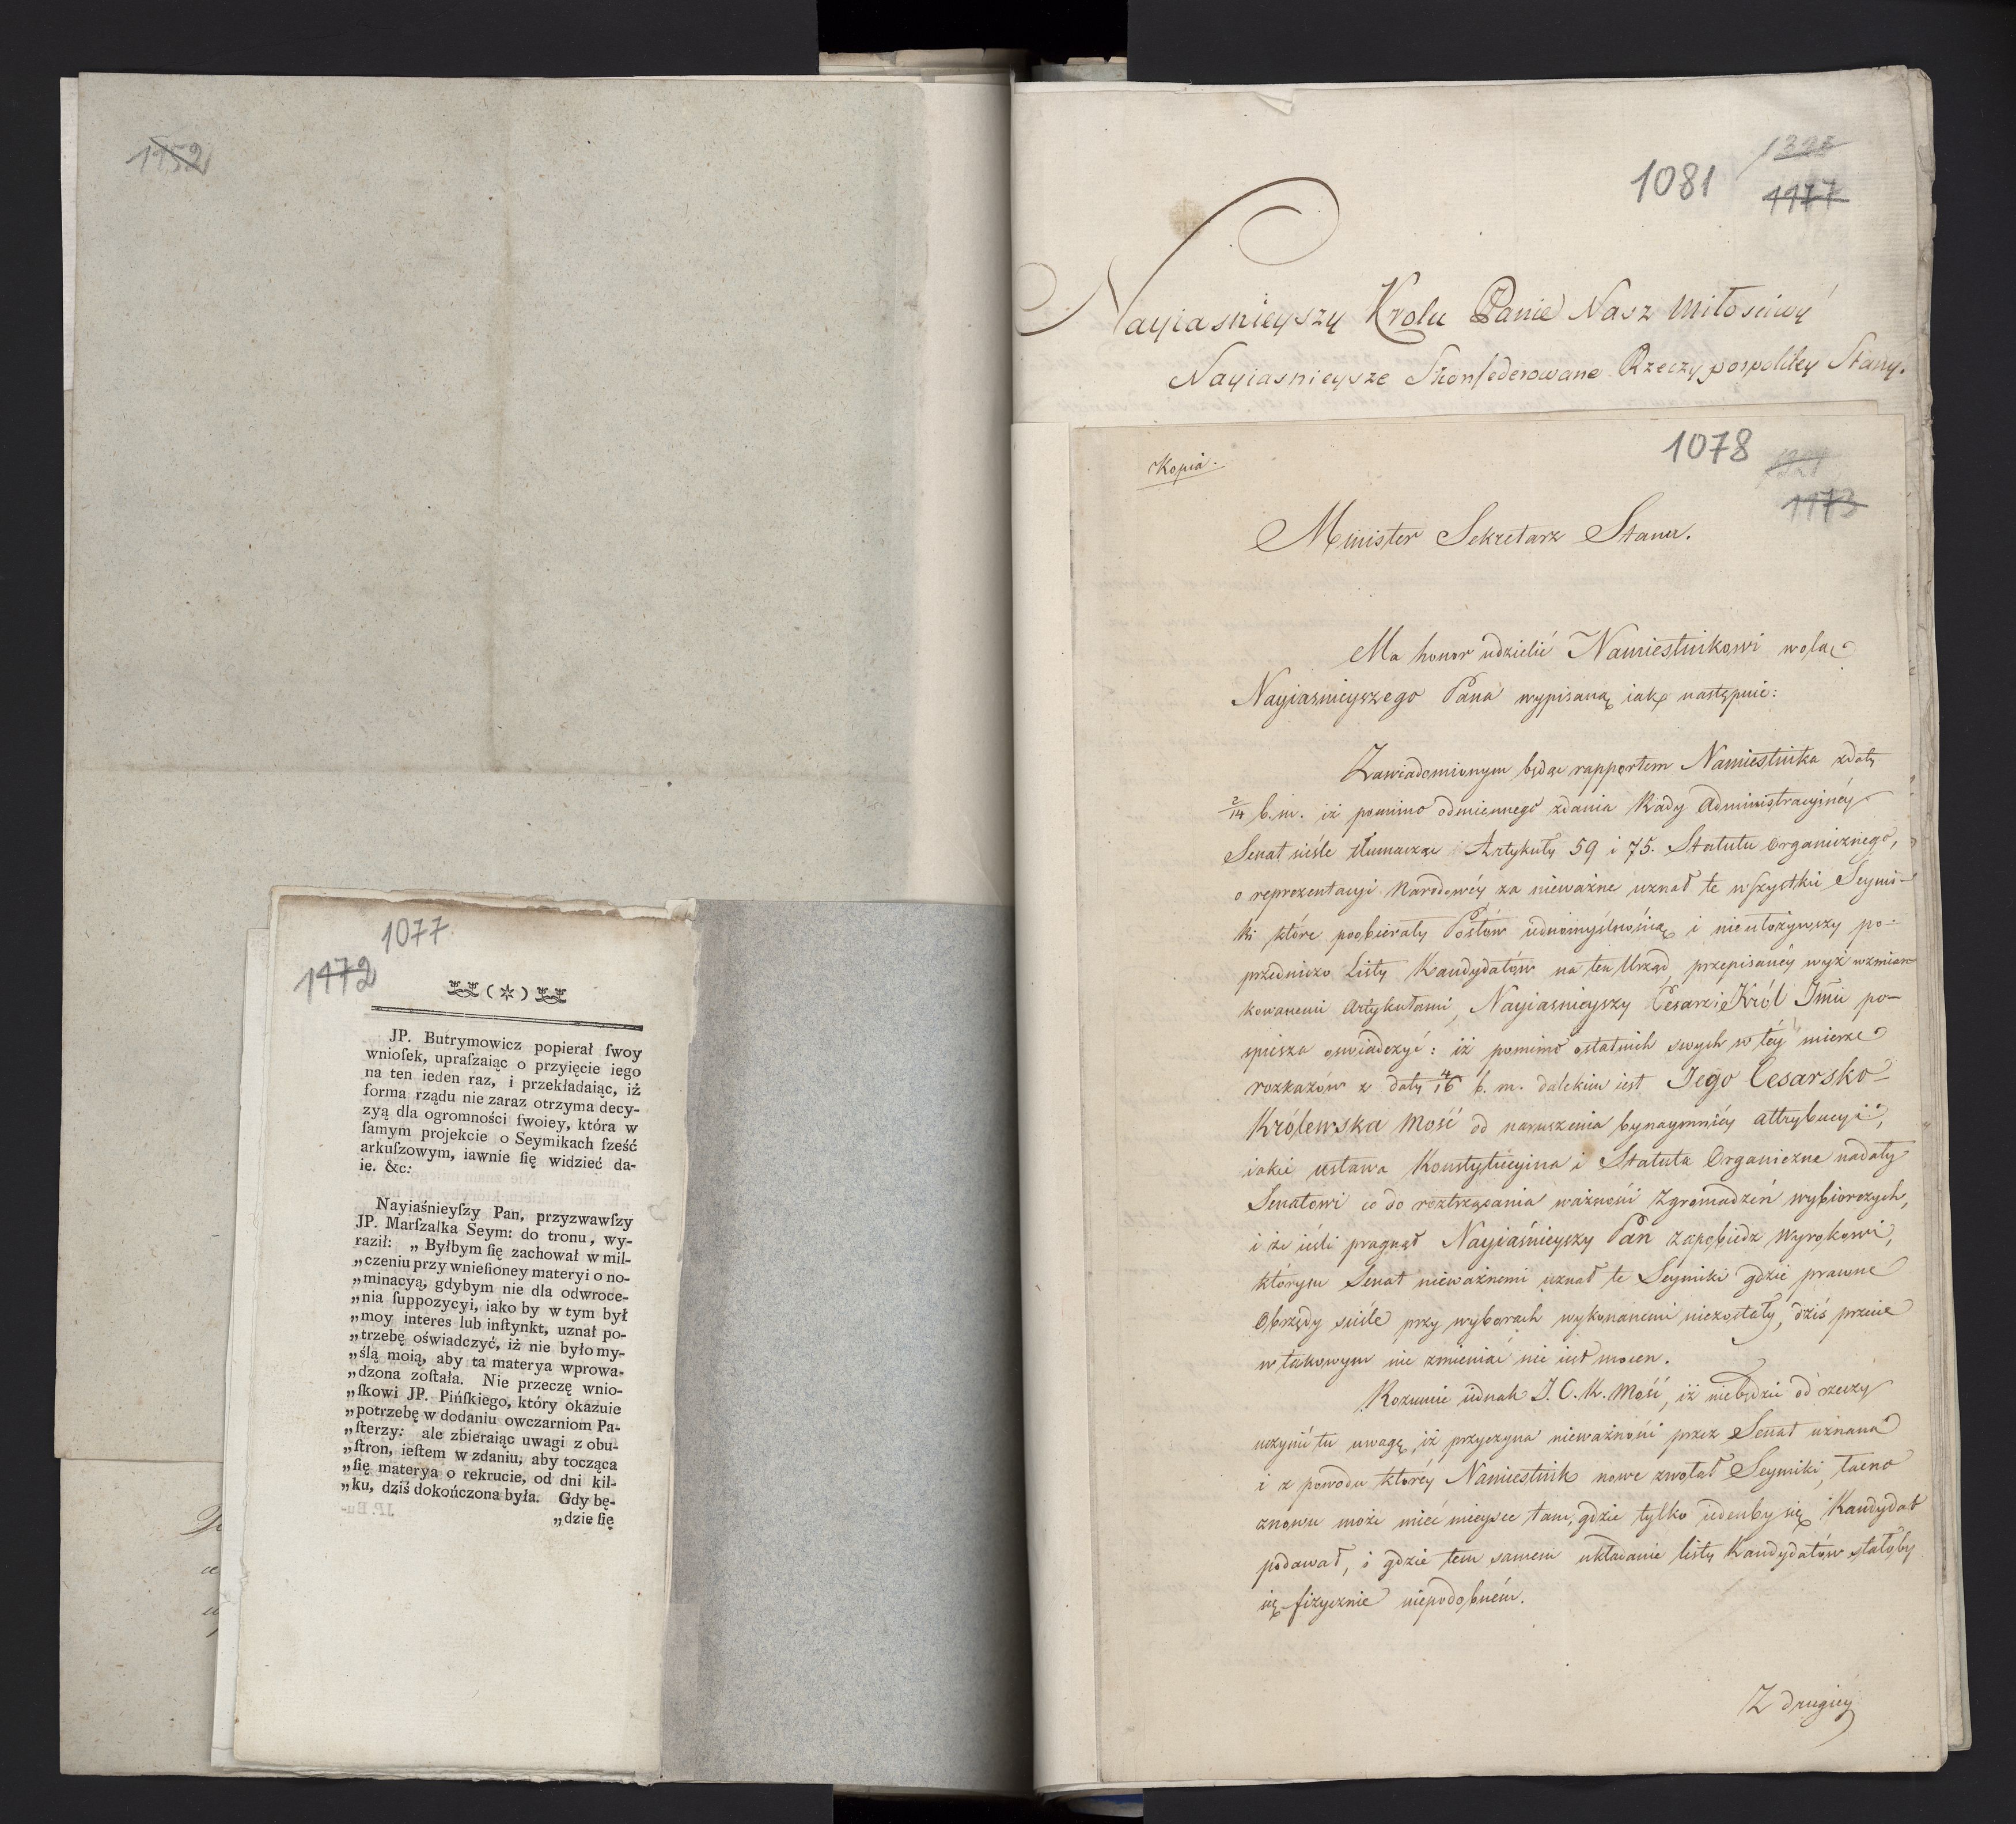 1152
1077
1172
(*)
JP. Butrymowicz popierał ſwoy
wnioſek, upraſzaiąc o przyięcie iego
na ten ieden raz, i przekładaiąc, iż
forma rządu nie zaraz otrzyma decy-
zyą dla ogromności ſwoiey, która w
ſamym projekcie o Seymikach ſześć
arkuſzowym, iawnie ſię widzieć da-
ie. &c:
Nayiaśnieyſzy Pan, przyzwawſzy
JP. Marſzałka Seym: do tronu, wy-
raził: „ Byłbym ſię zachował w mil-
„czeniu przy wnieſioney materyi o no-
„minacyą, gdybym nie dla odwroce-
„nia ſuppozycyi, iako by w tym był
„moy interes lub inſtynkt, uznał po-
„trzebę oświadczyć, iż nie było my-
„ślą moią, aby ta materya wprowa-
„dzona zoſtała. Nie przeczę wnio-
„ſkowi JP. Pińſkiego, który okazuie
„potrzebę w dodaniu owczarniom Pa-
„ſterzy: ale zbieraiąc uwagi z obu-
„ſtron, ieſtem w zdaniu, aby tocząca
„ſię materya o rekrucie, od dni kil-
„ku, dziś dokończona była. Gdy bę-
„dzie ſię
1081
1177
Nayiasnieyszy Krolu Panie Nasz Miłosciwy
Nayiasnieysze Skonfederowane Rzeczypospolitey Stany.
1078
1173
Kopia.
Minister Sekretarz Stanu.
Ma honor udzielić Namiestnikowi wolą
Nayiasnieyszego Pana wypisaną iak następuie:
Zawiadomionym będąc rapportem Namiestnika zdaty
2/14 b.m. iż pomimo odmiennego zdania Rady Administracyinéy
Senat ściśle tłumacząc Artykuły 59 i 75. Statutu Organicznego,
o reprezentacyi Narodowéy za nieważne uznał te wszystkie Seymi-
ki które poobierały Posłów iednomyślnością i nieułożywszy po-
przedniczo Listy Kandydatów na ten Urząd, przepisanéy wyż wzmian-
kowanemi Artykułami, Nayiasnieyszy Cesarz i Król Jmć po-
spiesza oswiadczyć: iż pomimo ostatnich swych w téy mierze
rozkazów z daty 4/16 b.m. dalekim iest Jego Cesarsko-
Królewska Mość od naruszenia bynaymniéy attrybucyi,
iakie ustawa Konstytucyina i Statuta Organiczne nadały
Senatowi co do roztrząsania ważności Zgromadzeń wybiorczych,
i że ieśli pragnął Nayiaśnieyszy Pan zapobiedz Wyrokowi,
którym Senat nieważnemi uznał te Seymiki gdzie prawne
Obrzędy ściśle przy wyborach wykonanemi niezostały, dziś przecie
w takowym nic zmieniać nie iest mocen.
Rozumie iednak J.C.K. Mość, iż niebędzie od rzeczy
uczynić tu uwagę, iż przyczyna nieważności przez Senat uznana
i z powodu któréy Namiestnik nowe zwołał Seymiki, łacno
znowu może mieć mieysce tam, gdzie tylko iedenby się Kandydat
podawał, i gdzie tem samem układanie listy Kandydatów stałoby
się fizycznie niepodobném.
Z drugiey